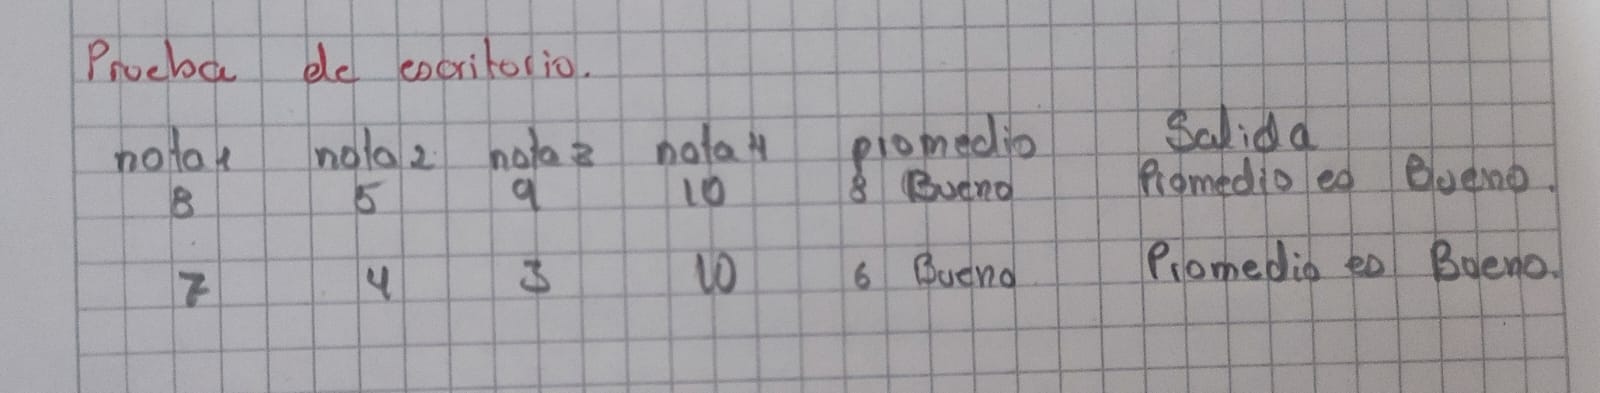 Prueba de escritorio.
nota1 nota2 nota3 nota4 promedio Salida
8 5 9 10 8 Bueno Promedio es Bueno.
7 4 3 10 6 Bueno Promedio es Bueno.